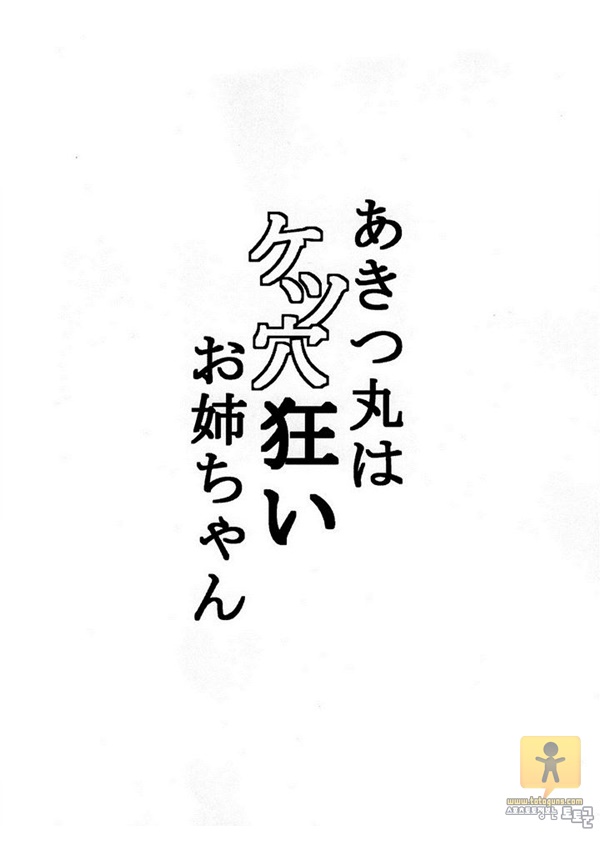 あきつ丸は
ケツ穴狂い
お姉ちゃん
www.totoguns.com
토토군